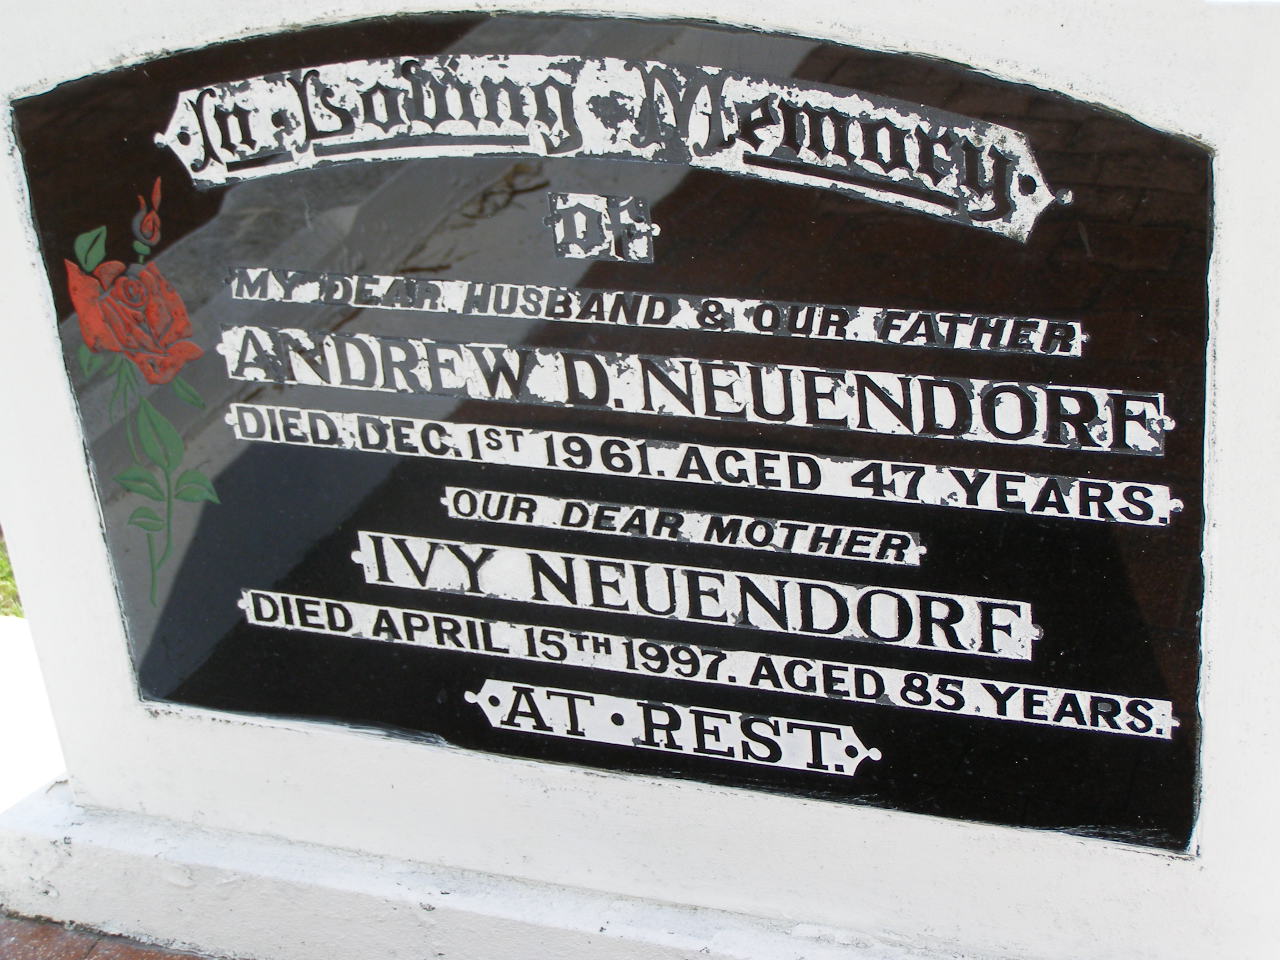 In Loving Memory
OF
MY DEAR HUSBAND & OUR FATHER
ANDREW D. NEUENDORF
DIED DEC. 1ST 1961. AGED 47 YEARS.
OUR DEAR MOTHER
IVY NEUENDORF
DIED APRIL 15TH 1997. AGED 85 YEARS.
·AT·REST.·